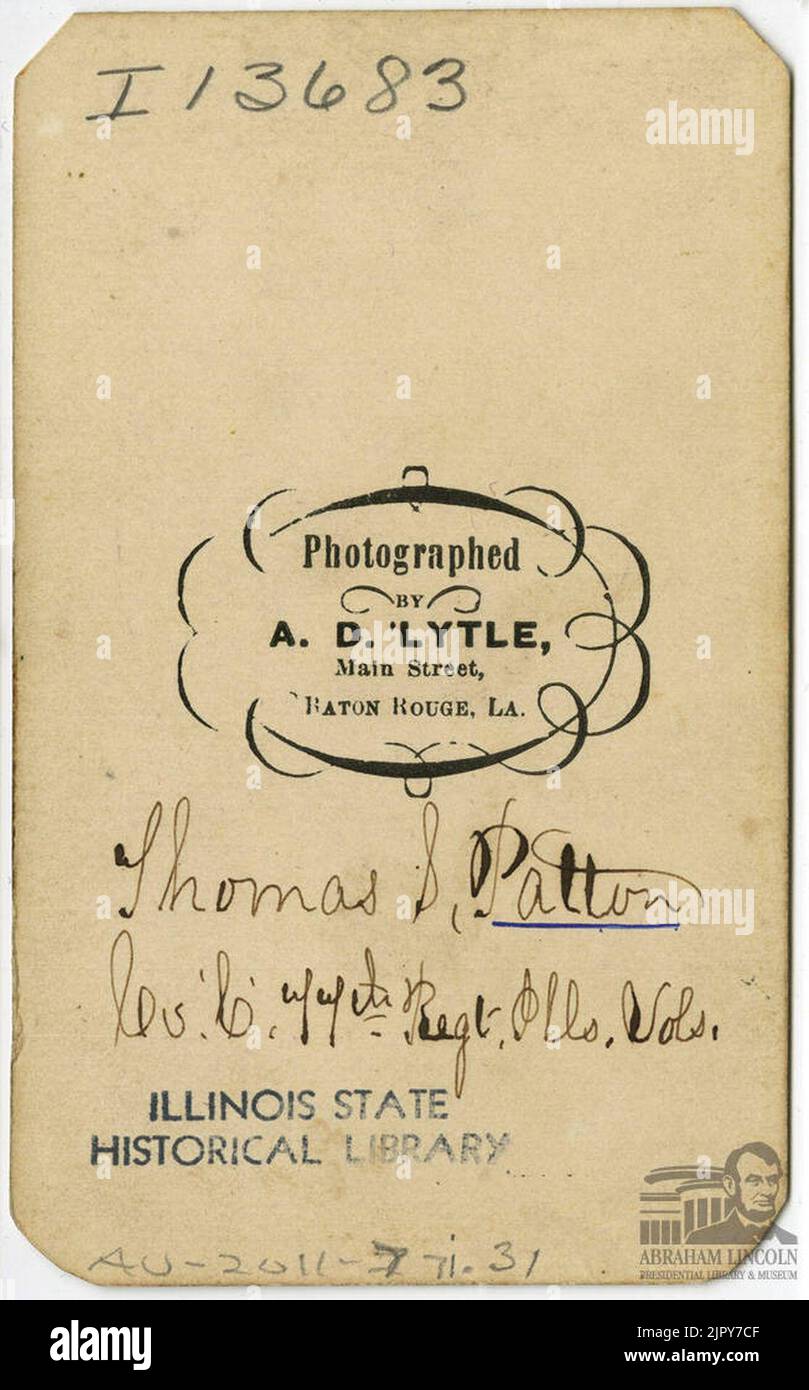 I13683
Photographed
BY
A. D. LYTLE,
Main Street,
BATON ROUGE, LA.
Thomas S. Patton
Co. C. 77th Regt. Ills. Vols.
ILLINOIS STATE
HISTORICAL LIBRARY
ABRAHAM LINCOLN
PRESIDENTIAL LIBRARY & MUSEUM
alamy
Image ID: 2JPY7CF
www.alamy.com